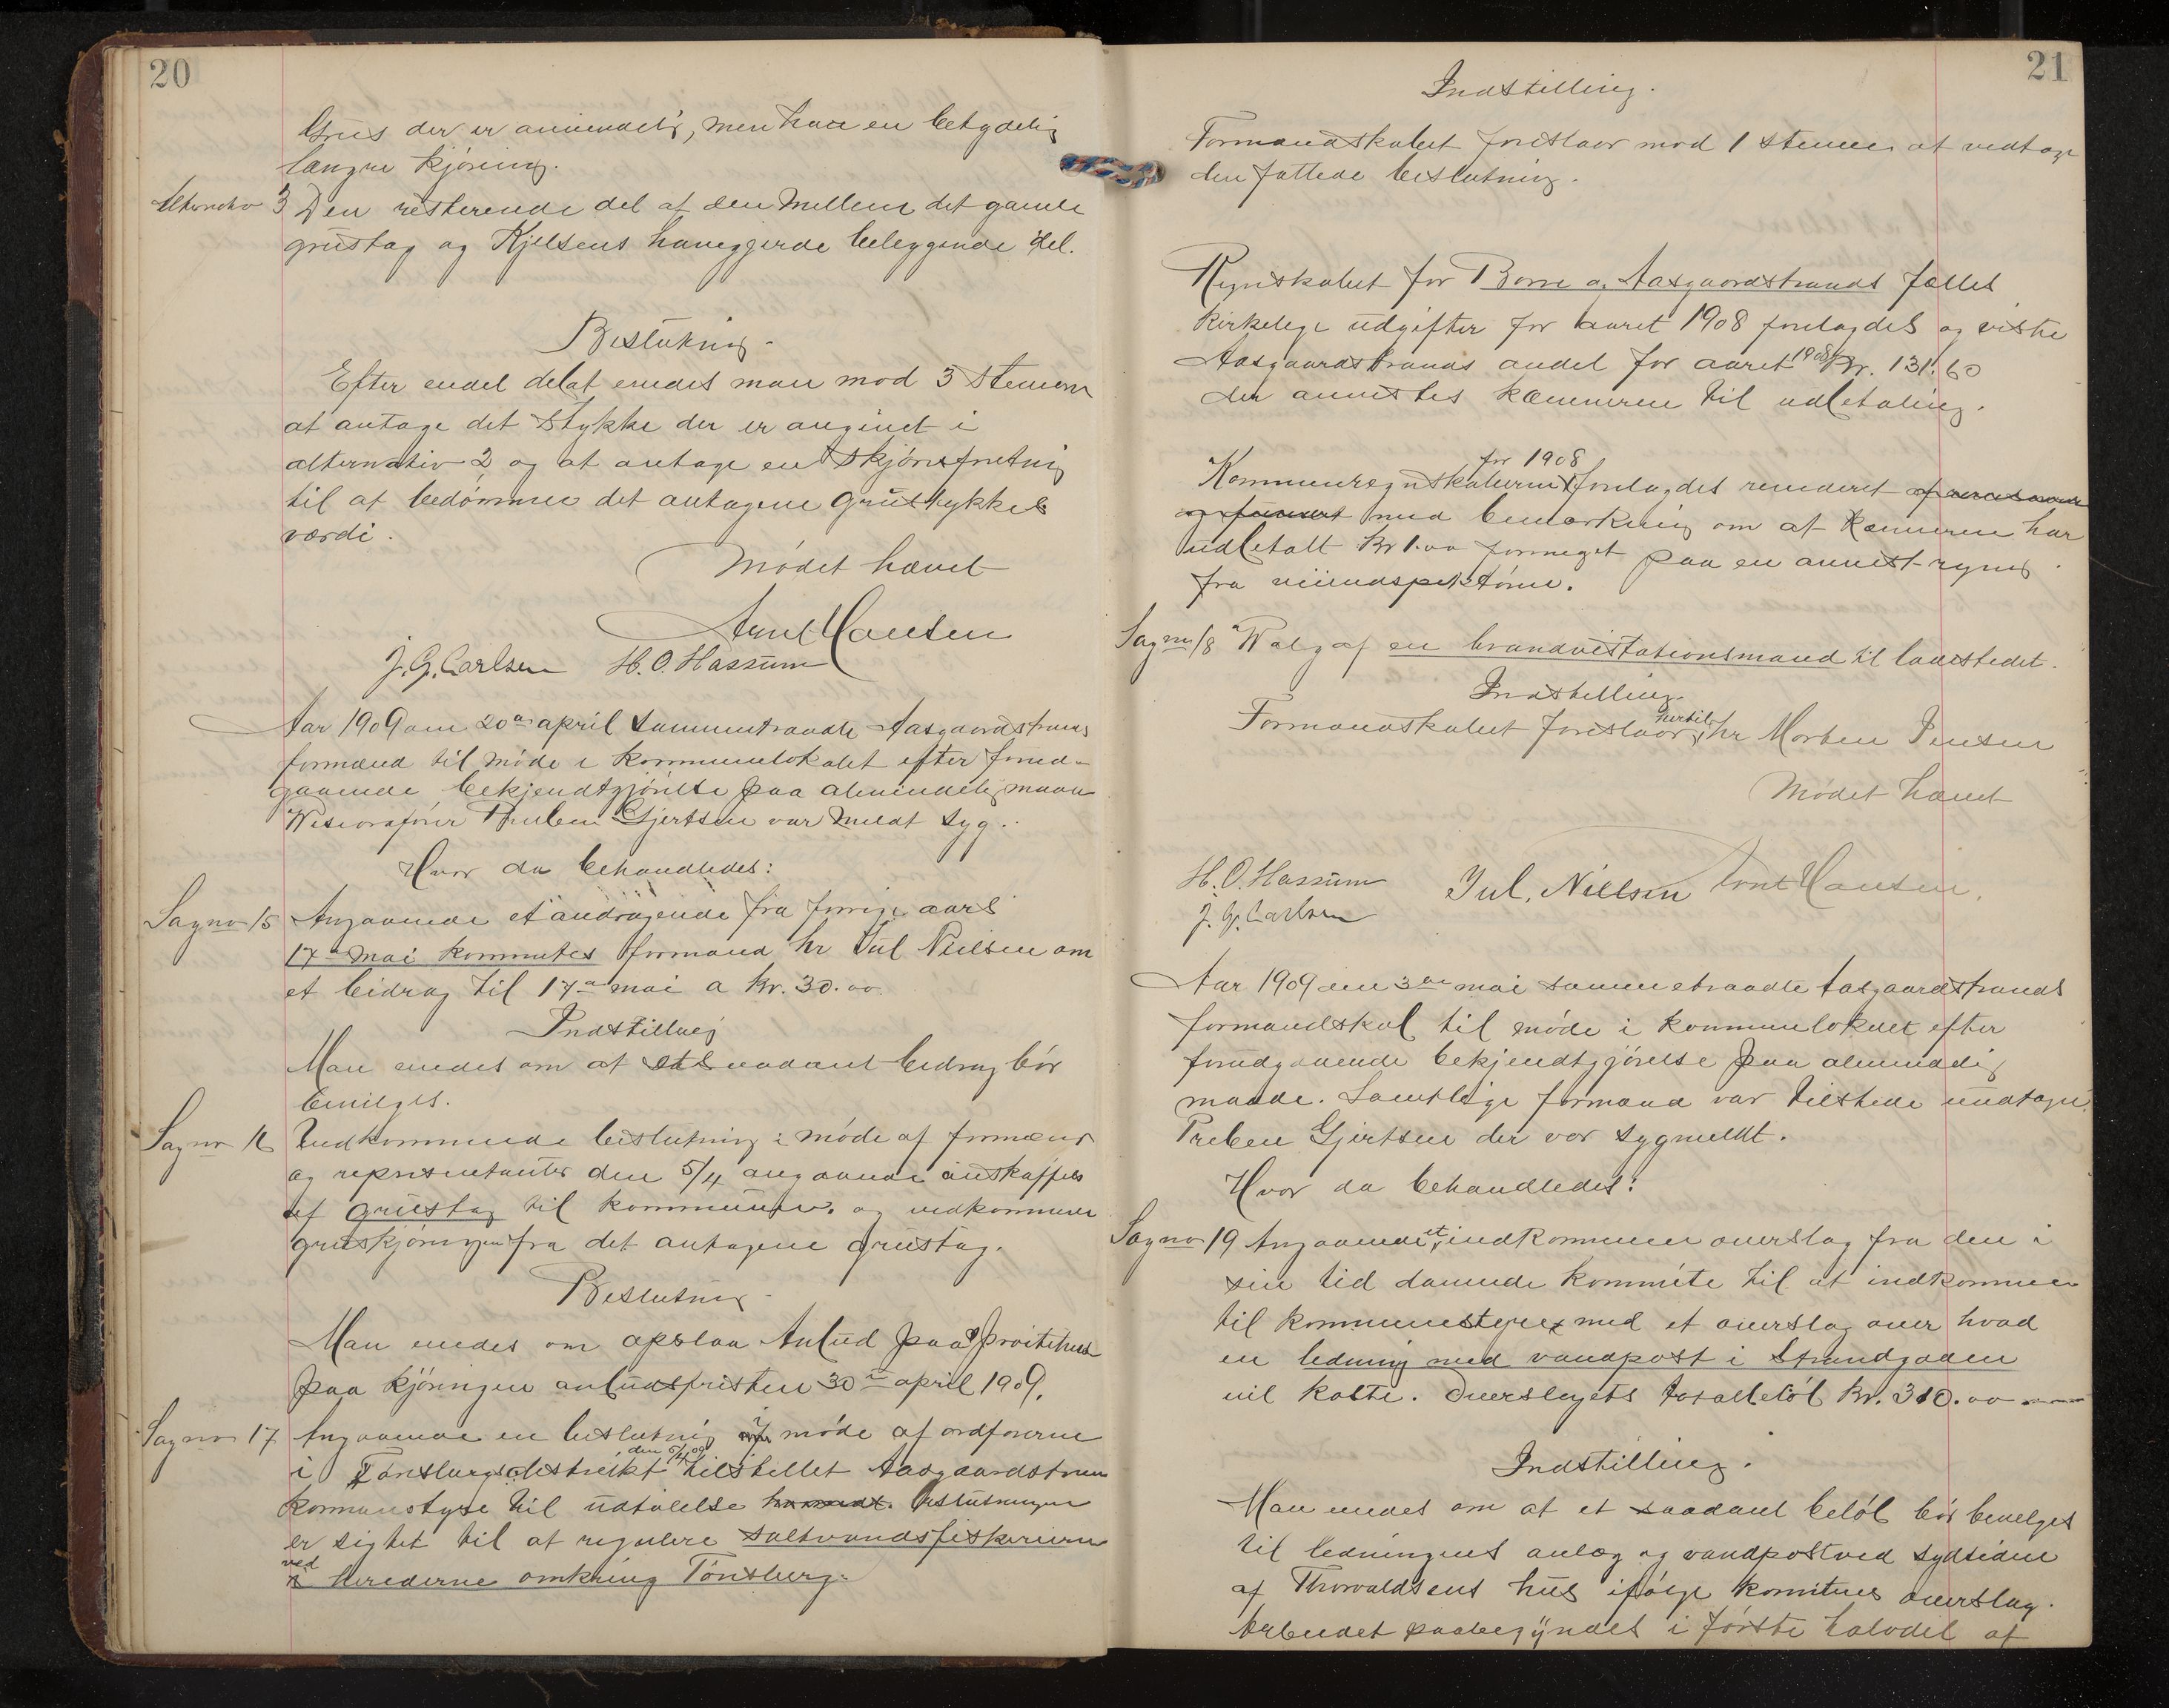 20
Grus der er anvendelig, men har en betydelig
længre kjøring.
Alternativ 3 Den resterende del af den mellem det gamle
grustag og Kjelsens havegjerde beliggende del.
Beslutning.
Efter endel debat enedes man mod 3 stemmer
at antage det stykke der er angivet i
alternativ 2 og at antage en skjønsfretnig
til at bedømme det antagene grustykkes
værdi.
Mødet hævet
Arnt Hansen
J. G. Carlsen H. O. Hassum
Aar 1909 den 20de april sammentraadte Aasgaardstrands
formænd til møde i kommunelokalet efter forud-
gaaende bekjendtgjørelse paa almindelig maade
Viseordfører Preben Gjertsen var meldt syg.
Hvor da behandledes:
Sag no 15 Angaaende et andragende fra forrige aars
17de mai kommites formand hr Jul Nielsen om
et bidrag til 17de mai a kr. 30.00
Indstilling
Man enedes om at et saadant bidrag bør
bevilges.
Sag no 16 Indkommende beslutning i møde af formænd
og representanter den 5/4 angaaende anskaffels
af grustag til kommunen. og vedkommende
gruskjøringen fra det antagene grustag.
Beslutning
Man enedes om opslaa Anbud paa
paa kjøringen anbudsfristen 30te april 1909.
Sag no 17 Angaaende en beslutning i møde af ordførerne
i Tønsbergs distrikt den 5/4 09 tilstillet Aasgaardstrands
kommunstyre til udtalelse Beslutningen
er sigtet til at regulere saltvandsfiskerierne
ved herederne omkring Tønsberg.
21
Indstilling.
Formandskabet foreslaar mod 1 stemme at vedtage
den fattede beslutning.
Regnskabet for Borre og Aasgaardstrands fælles
kirkelige udgifter for aaret 1908 forelagdes og viste
Aasgaardstrands andel for aaret 1908 Kr. 131.60
der anvistes kæmneren til udbetaling.
Kommuneregnskaberne for 1908 forelagdes revideret
med bemærkning om at Kæmneren har
udbetalt Kr 1.00 formeget paa en anvist regning
fra veiindspektørne.
Sag no 18 Valg af en brandvisitationsmand til ladestedet.
Indstilling.
Formandskabet foreslaar hertil hr Morten Jensen
Mødet hævet
H. O. Hassum Jul. Nielsen Arnt Hansen.
J. G. Carlsen
Aar 1909 den 3die mai sammentraadte Aasgaardstrands
formandskab til møde i kommunelokalet efter
forudgaaende bekjendtgjørelse paa almindelig
maade. Samtlige formænd var tilstede undtagen
Preben Gjertsen der var sygmeldt.
Hvor da behandledes:
Sag no 19 Angaaende et indkommen overslag fra den i
sin tid dannede kommite til at indkomme
til kommunestyret med et overslag over hvad
en ledning med vandpost i Strandgaden
vil koste. Overslagets totalbeløb Kr. 310.00
Indstilling.
Man enedes om at et saadant beløb bør bevilges
til ledningens anlæg og vandpost ved sydsiden
af Thorvaldsens hus ifølge komiteens overslag.
Arbeidet paabegyndes i første halvdel af